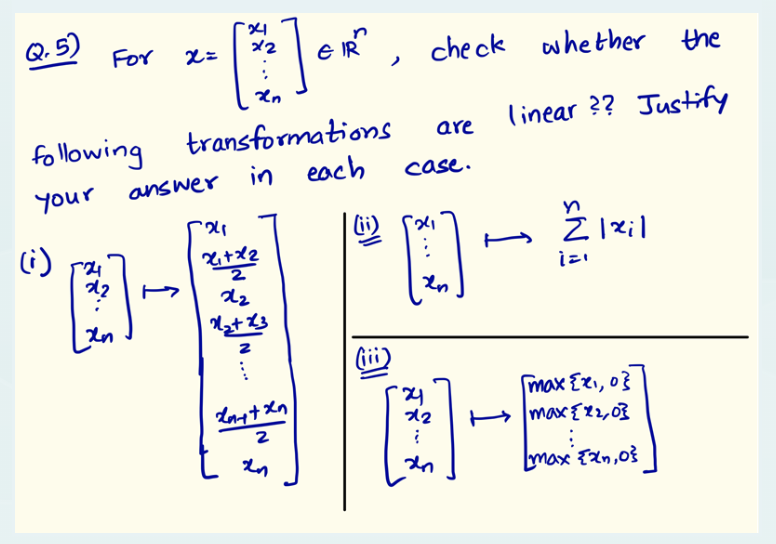 Q.5) For x = [x1 x2 ⋮ xn] ∈ ℝ^n , check whether the
following transformations are linear ?? Justify
your answer in each case.
(i) [x1 x2 ⋮ xn] ↦ [x1 (x1+x2)/2 x2 (x2+x3)/2 ⋮ (xn-1+xn)/2 xn]
(ii) [x1 ⋮ xn] ↦ n Σ i=1 |xi|
(iii) [x1 x2 ⋮ xn] ↦ [max {x1, 0} max {x2, 0} ⋮ max {xn, 0}]